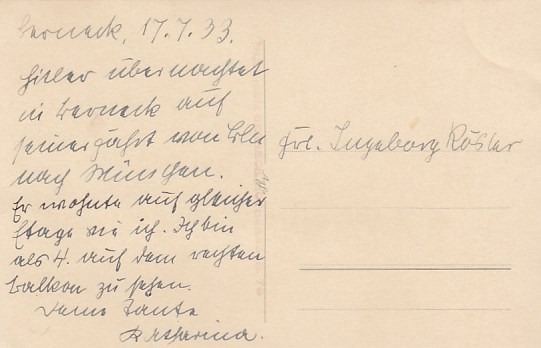 Berneck, 17.7.33.
Hitler übernachtet
in Berneck auf
seiner Fahrt von Bln
nach München.
Er wohnte auf gleicher
Etage wie ich. Ich bin
als 4. auf dem rechten
Balkon zu sehen.
Deine Tante
Katharina.
Frl. Ingeborg Rösler